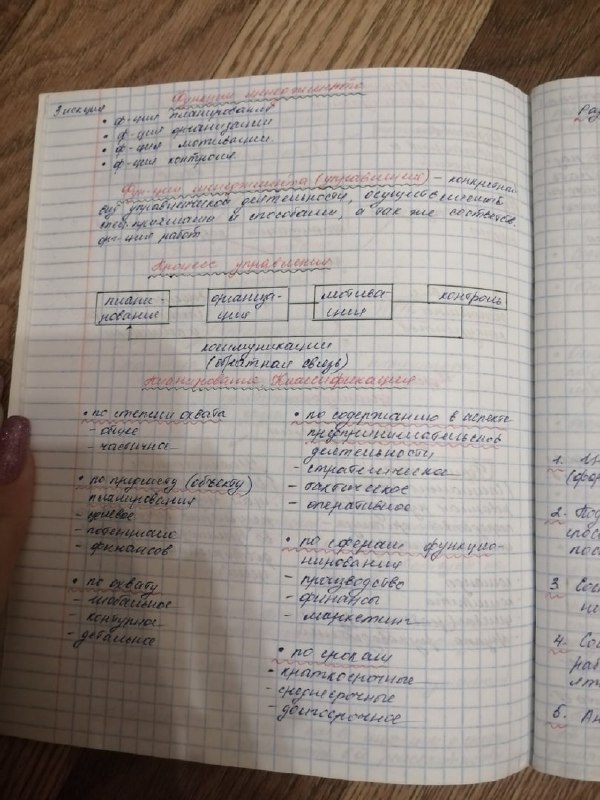 3 лекция
Функции менеджмента
• ф-ция планирования
• ф-ция организации
• ф-ция мотивации.
• ф-ция контроля.
Фун-ции менеджмента (управления) – конкретный
вид управленческой деятельности, осуществляемый
спец. приёмами и способами, а так же соответств.
орг-ция работ.
Процесс управления
плани-
рование
организа-
ция
мотива-
ция
контроль
коммуникации
(обратная связь)
Планирование Классификация
• по степени охвата
– общее
– частичное
• по предмету (объекту)
планирования
– целевое
– потенциала
– финансов
• по охвату
– глобальное
– контурное
– детальное
• по содержанию в аспекте
предпринимательской
деятельности
– стратегическое
– тактическое
– оперативное
• по сферам функцио-
нирования
– производство
– финансы
– маркетинг
• по срокам
• краткосрочные
– среднесрочные
– долгосрочное
1.
2.
3.
4.
5. Ан